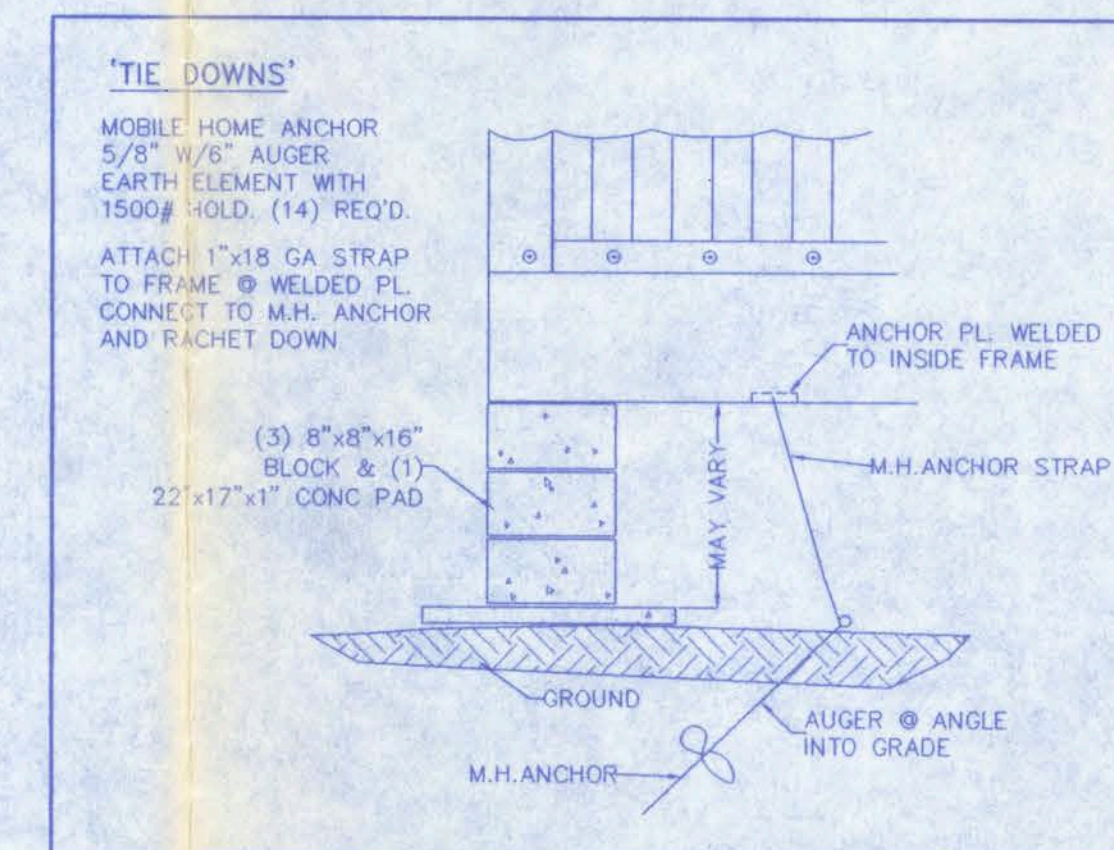 'TIE DOWNS'
MOBILE HOME ANCHOR
5/8" W/6" AUGER
EARTH ELEMENT WITH
1500# HOLD. (14) REQ'D.
ATTACH 1"x18 GA STRAP
TO FRAME @ WELDED PL.
CONNECT TO M.H. ANCHOR
AND RACHET DOWN
ANCHOR PL. WELDED
TO INSIDE FRAME
(3) 8"x8"x16"
BLOCK & (1)
22"x17"x1" CONC PAD
MAY VARY
M.H.ANCHOR STRAP
GROUND
AUGER @ ANGLE
INTO GRADE
M.H.ANCHOR